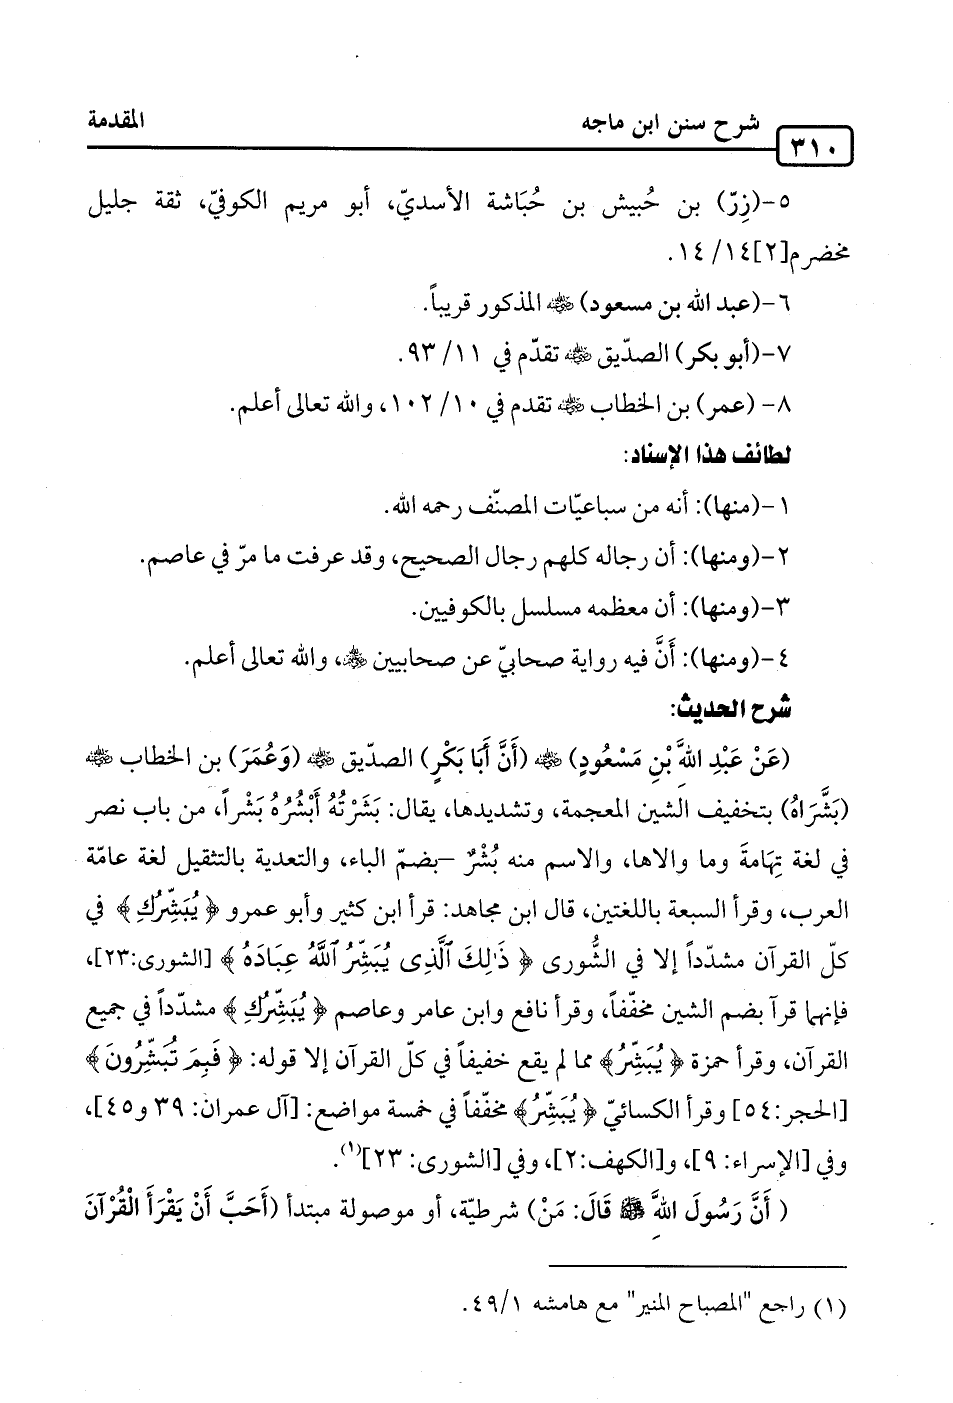 شرح سنن ابن ماجه
المقدمة
٣١٠
٥-(زِرّ) بن حُبيش بن حُبَاشة الأسديّ، أبو مريم الكوفيّ، ثقة جليل
مخضرم[٢]١٤/ ١٤.
٦-(عبد الله بن مسعود) رضي الله عنه المذكور قريباً.
٧-(أبو بكر) الصدّيق رضي الله عنه تقدّم في ١١/ ٩٣.
٨- (عمر) بن الخطاب رضي الله عنه تقدم في ١٠/ ١٠٢، والله تعالى أعلم.
لطائف هذا الإسناد:
١-(منها): أنه من سباعيّات المصنّف رحمه الله.
٢-(ومنها): أن رجاله كلهم رجال الصحيح، وقد عرفت ما مرّ في عاصم.
٣-(ومنها): أن معظمه مسلسل بالكوفيين.
٤-(ومنها): أَنَّ فيه رواية صحابيّ عن صحابيين رضي الله عنهم، والله تعالى أعلم.
شرح الحديث:
(عَنْ عَبْدِ اللهِ بْنِ مَسْعُودٍ) رضي الله عنه (أَنَّ أَبَا بَكْرٍ) الصدّيق رضي الله عنه (وَعُمَرَ) بن الخطاب رضي الله عنه
(بَشَّرَاهُ) بتخفيف الشين المعجمة، وتشديدها، يقال: بَشَرْتُهُ أَبْشُرُهُ بَشْراً، من باب نصر
في لغة تِهَامةَ وما والاها، والاسم منه بُشْرٌ –بضمّ الباء، والتعدية بالتثقيل لغة عامّة
العرب، وقرأ السبعة باللغتين، قال ابن مجاهد: قرأ ابن كثير وأبو عمرو ﴿ يُبَشِّرُكِ ﴾ في
كلّ القرآن مشدّداً إلا في الشُّورى ﴿ ذَٰلِكَ ٱلَّذِى يُبَشِّرُ ٱللَّهُ عِبَادَهُ ﴾ [الشورى:٢٣]،
فإنهما قرآ بضم الشين مخفّفاً، وقرأ نافع وابن عامر وعاصم ﴿ يُبَشِّرُكِ ﴾ مشدّداً في جميع
القرآن، وقرأ حمزة ﴿ يُبَشِّرُ﴾ مما لم يقع خفيفاً في كلّ القرآن إلا قوله: ﴿ فَبِمَ تُبَشِّرُونَ ﴾
[الحجر:٥٤] وقرأ الكسائيّ ﴿ يُبَشِّرُ﴾ مخفّفاً في خمسة مواضع: [آل عمران: ٣٩ و٤٥]،
وفي [الإسراء: ٩]، و[الكهف:٢]، وفي [الشورى: ٢٣](١).
( أَنَّ رَسُولَ اللهِ ﷺ قَالَ: مَنْ) شرطيّة، أو موصولة مبتدأ (أَحَبَّ أَنْ يَقْرَأَ الْقُرْآنَ
(١) راجع "المصباح المنير" مع هامشه ٤٩/١.